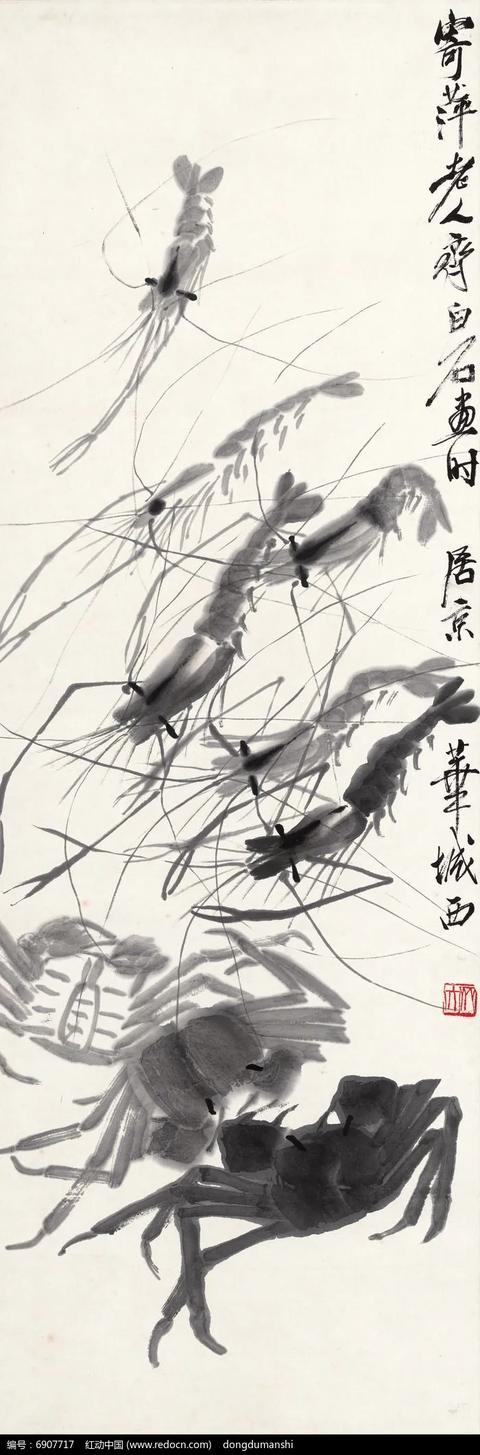 寄萍老人齊白石畫時居京華城西
编号：6907717 红动中国 (www.redocn.com) dongdumanshi